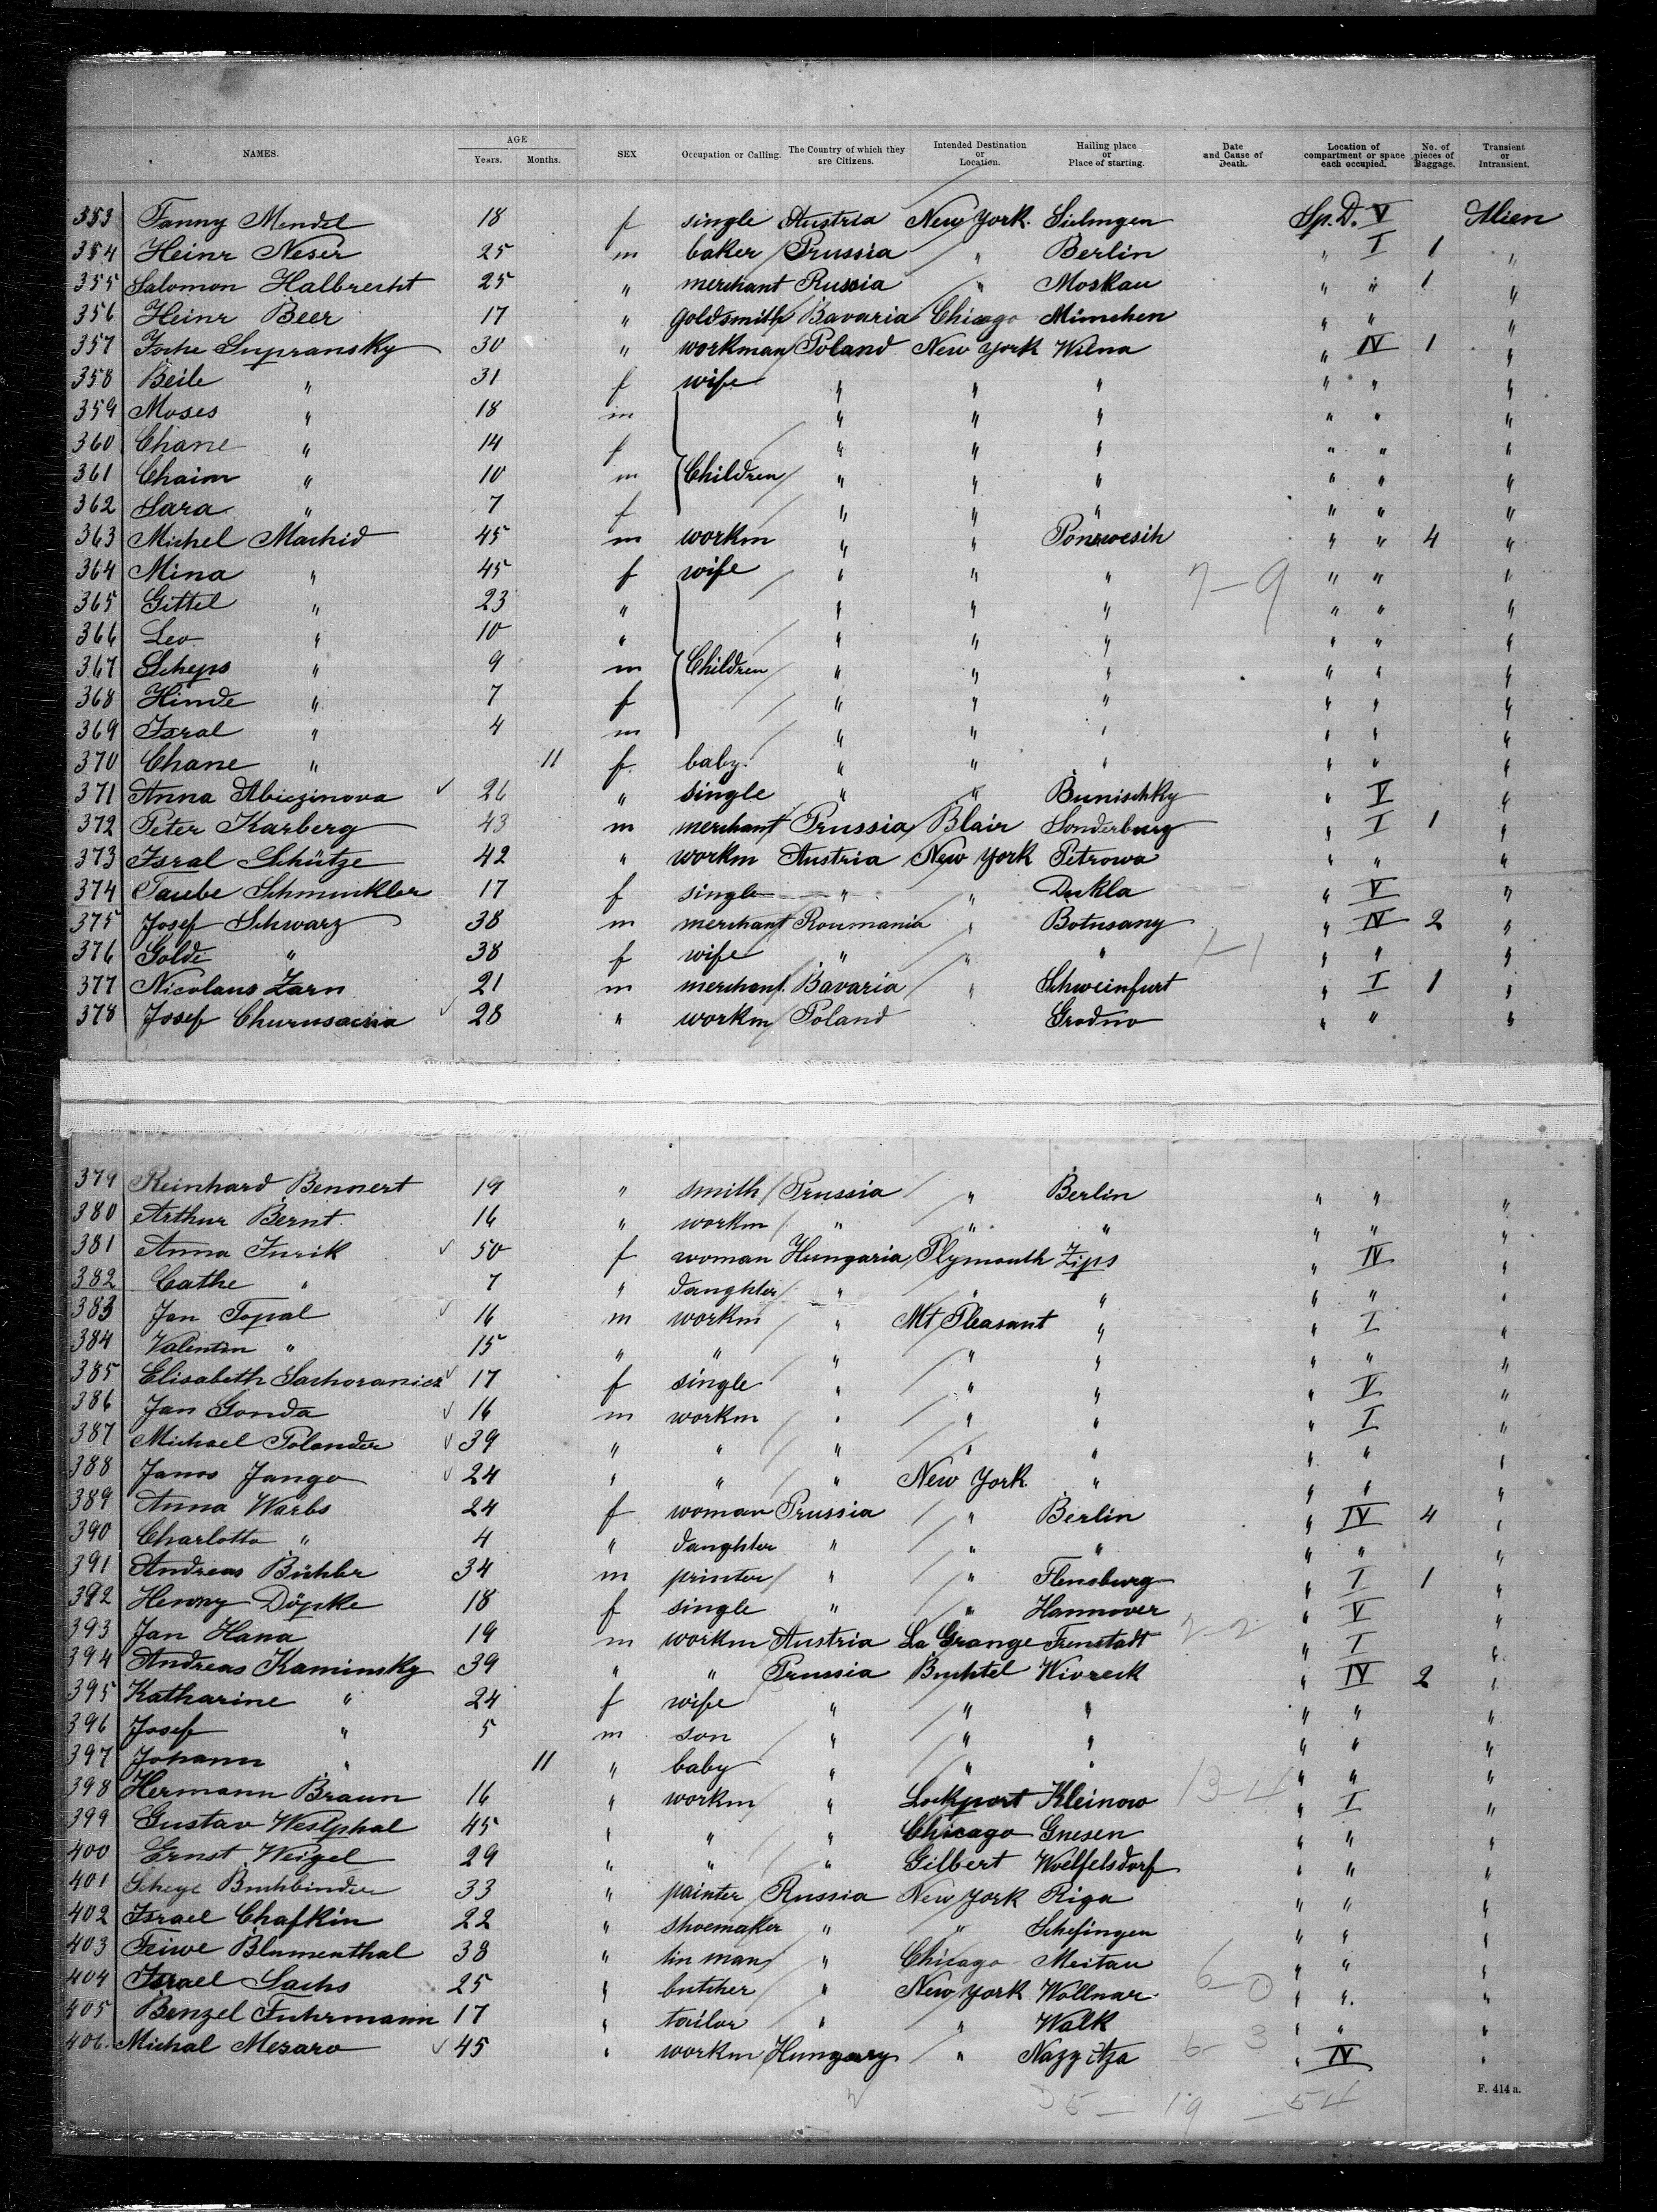 NAMES. AGE Years. Months. SEX Occupation or Calling. The Country of which they are Citizens. Intended Destination or Location. Hailing place or Place of starting. Date and Cause of Death. Location of compartment or space each occupied. No. of pieces of Baggage. Transient or Intransient.
353 Fanny Mendel 18 f single Austria New York Sielmgen Sp. D. V Alien
354 Heinr Neser 25 m baker Prussia " Berlin " I 1 "
355 Salomon Halbrecht 25 " merchant Russia " Moskau " " 1 "
356 Heinr Beer 17 " goldsmith Bavaria Chicago München " " "
357 Supransky 30 " workman Poland New York Wilna " IV 1 "
358 Beile " 31 f wife " " " " " "
359 Moses " 18 m " " " " " "
360 Chane " 14 f " " " " " "
361 Chaim " 10 m Children " " " " " "
362 Sara " 7 f " " " " " "
363 Michel Machid 45 m workm " " Ponewesih " " 4 "
364 Mina " 45 f wife " " " 7-9 " " "
365 Gittel " 23 " " " " " " "
366 Leo " 10 " " " " " " "
367 Scheps " 9 m Children " " " " " "
368 Hinde " 7 f " " " " " "
369 Isral " 4 m " " " " " "
370 Chane " 11 f baby " " " " " "
371 Anna Abiczinova 26 " single " " Bunischky " V "
372 Peter Karberg 43 m merchant Prussia Blair Sonderburg " I 1 "
373 Isral Schütze 42 " workm Austria New York Petrowa " " "
374 Taube Schmuckler 17 f single " " Dukla " V "
375 Josef Schwarz 38 m merchant Roumania " Botusany " IV 2 "
376 Golde " 38 f wife " " " 1-1 " " "
377 Nicolaus Zarn 21 m merchant Bavaria " Schweinfurt " I 1 "
378 Josef 28 " workm Poland Grodno " " "
379 Reinhard Bennert 19 " smith Prussia " Berlin " " "
380 Arthur Bernt 16 " workm " " " " " "
381 Anna Jurik 50 f woman Hungaria Plymouth Zips " IV "
382 Cathe " 7 " daughter " " " " " "
383 Jan Topal 16 m workm " Mt Pleasant " " I "
384 Valentin " 15 " " " " " " " "
385 Elisabeth Sachoranicz 17 f single " " " " V "
386 Jan Gonda 16 m workm " " " " I "
387 Michael Polander 39 " " " " " " " "
388 Janos Jango 24 " " " New York " " " "
389 Anna Warbs 24 f woman Prussia " Berlin " IV 4 "
390 Charlotte " 4 " daughter " " " " " "
391 Andreas Bühler 34 m printer " " Flensburg " I 1 "
392 Henny Döpke 18 f single " " Hannover " V "
393 Jan Hana 19 m workm Austria La Grange Frenstadt 2-2 " I "
394 Andreas Kaminsky 39 " " Prussia Buchtel Wivreck " IV 2 "
395 Katharine " 24 f wife " " " " " "
396 Josef " 5 m son " " " " " "
397 Johann " 11 " baby " " " " " "
398 Hermann Braun 16 " workm " Lockport Kleinow 13-4 " I "
399 Gustav Westphal 45 " " " Chicago Gnesen " " "
400 Ernst Weigel 29 " " " Gilbert Woelfelsdorf " " "
401 Scheye Buchbinder 33 " painter Russia New York Riga " " "
402 Israel Chafkin 22 " shoemaker " " Schefingen " " "
403 Feiwe Blumenthal 38 " tin man " Chicago Meitau " " "
404 Israel Sachs 25 " butcher " New York Wollmar 6-0 " " "
405 Benzel Fuhrmann 17 " tailor " " Walk " " "
406. Michal Mesaro 45 " workm Hungary " 6 3 " IV "
F. 414 a.
19 - 54